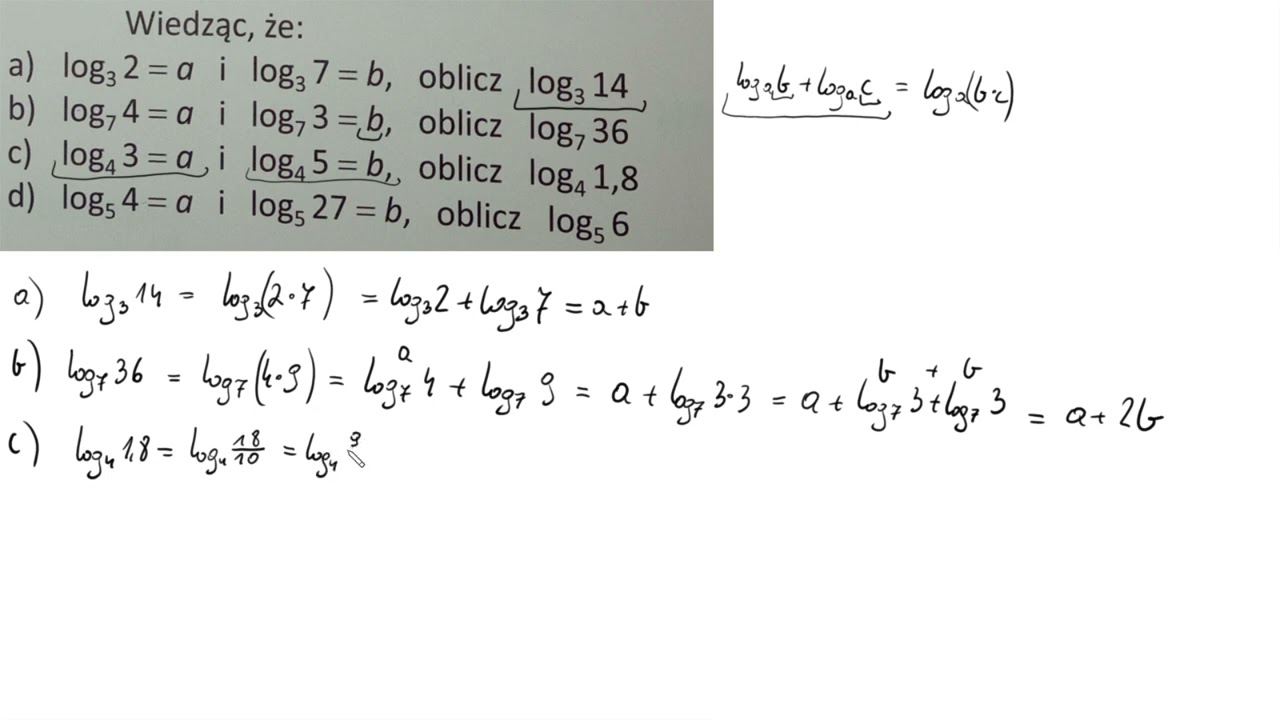 Wiedząc, że:
a) log₃ 2 = a i log₃ 7 = b, oblicz log₃ 14
b) log₇ 4 = a i log₇ 3 = b, oblicz log₇ 36
c) log₄ 3 = a i log₄ 5 = b, oblicz log₄ 1,8
d) log₅ 4 = a i log₅ 27 = b, oblicz log₅ 6
logₐb + logₐc = logₐ(b·c)
a) log₃ 14 = log₃(2·7) = log₃2 + log₃7 = a+b
a b + b
b) log₇ 36 = log₇(4·9) = log₇ 4 + log₇ 9 = a + log₇ 3·3 = a + log₇ 3 + log₇ 3 = a + 2b
c) log₄ 1,8 = log₄ 18/10 = log₄ 9